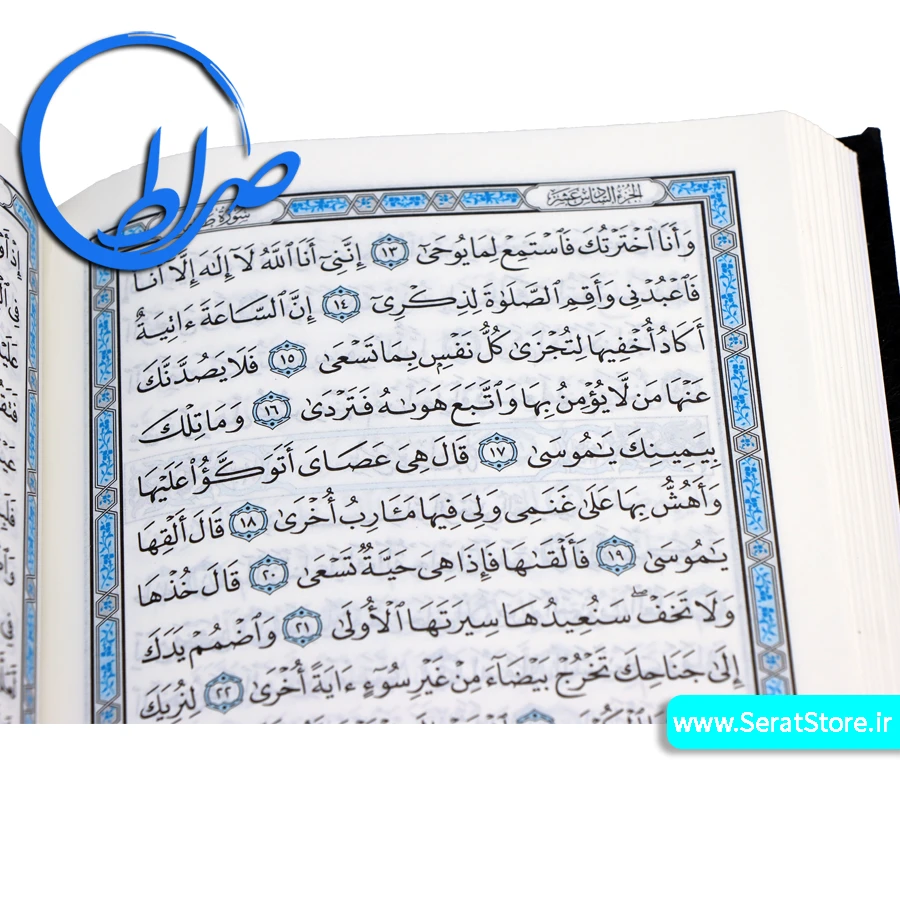 صراط
الجزء السادس عشر
سورة طه
وَأَنَا ٱخْتَرْتُكَ فَٱسْتَمِعْ لِمَا يُوحَىٰٓ ١٣ إِنَّنِىٓ أَنَا ٱللَّهُ لَآ إِلَـٰهَ إِلَّآ أَنَا۠
فَٱعْبُدْنِى وَأَقِمِ ٱلصَّلَوٰةَ لِذِكْرِىٓ ١٤ إِنَّ ٱلسَّاعَةَ ءَاتِيَةٌ
أَكَادُ أُخْفِيهَا لِتُجْزَىٰ كُلُّ نَفْسٍۭ بِمَا تَسْعَىٰ ١٥ فَلَا يَصُدَّنَّكَ
عَنْهَا مَن لَّا يُؤْمِنُ بِهَا وَٱتَّبَعَ هَوَىٰهُ فَتَرْدَىٰ ١٦ وَمَا تِلْكَ
بِيَمِينِكَ يَـٰمُوسَىٰ ١٧ قَالَ هِىَ عَصَاىَ أَتَوَكَّؤُا۟ عَلَيْهَا
وَأَهُشُّ بِهَا عَلَىٰ غَنَمِى وَلِىَ فِيهَا مَـَٔارِبُ أُخْرَىٰ ١٨ قَالَ أَلْقِهَا
يَـٰمُوسَىٰ ١٩ فَأَلْقَىٰهَا فَإِذَا هِىَ حَيَّةٌ تَسْعَىٰ ٢٠ قَالَ خُذْهَا
وَلَا تَخَفْ ۖ سَنُعِيدُهَا سِيرَتَهَا ٱلْأُولَىٰ ٢١ وَٱضْمُمْ يَدَكَ
إِلَىٰ جَنَاحِكَ تَخْرُجْ بَيْضَآءَ مِنْ غَيْرِ سُوٓءٍ ءَايَةً أُخْرَىٰ ٢٢ لِنُرِيَكَ
www.SeratStore.ir